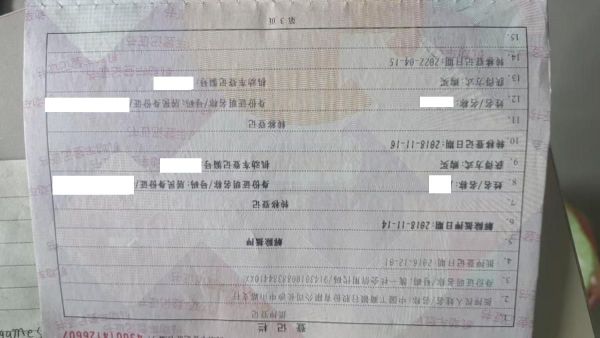 登记栏
1 抵押登记
2 抵押权人姓名/名称:
3 身份证明名称/号码:统一社会信用代码/
4 抵押登记日期:2016-12-01
5 解除抵押
6 解除抵押日期:2018-11-14
7 转移登记
8 姓名/名称: 身份证明名称/号码:居民身份证/
9 获得方式:购买 机动车登记编号:
10 转移登记日期:2018-11-16
11 转移登记
12 姓名/名称: 身份证明名称/号码:居民身份证/
13 获得方式:购买 机动车登记编号:
14 转移登记日期:2022-04-15
15
第3页